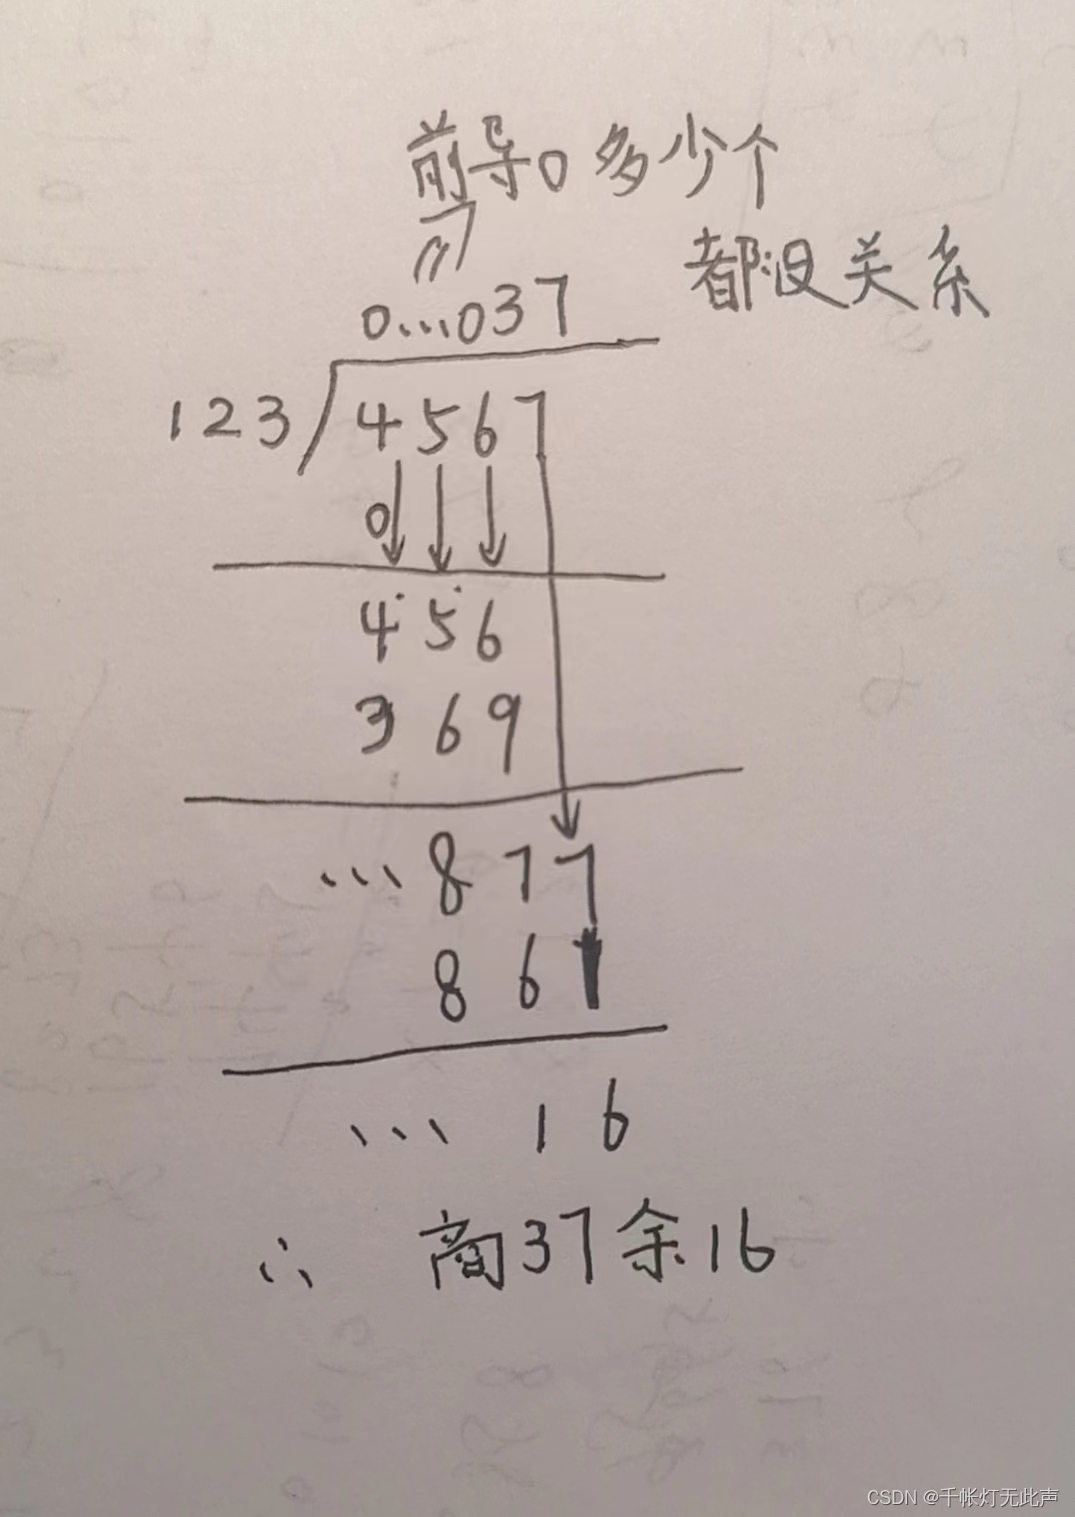 前导0多少个
都没关系
0...037
123 4567
0
456
369
...877
861
... 16
∴ 商37余16
CSDN @千帐灯无此声